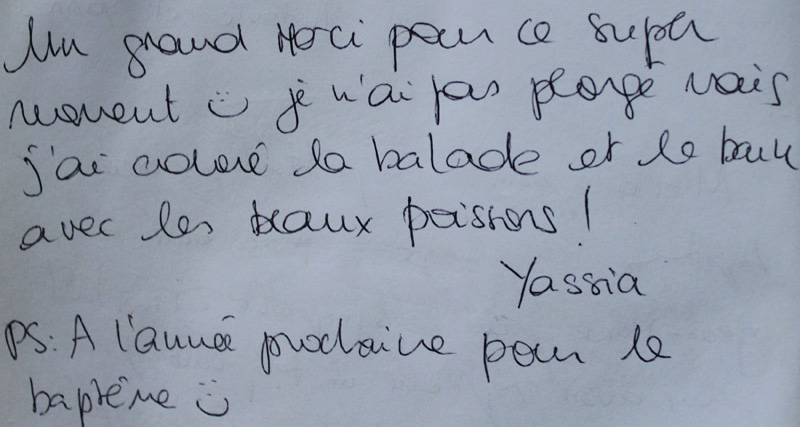 Un grand Merci pour ce super
moment ☺ je n'ai pas plongé mais
j'ai adoré la balade et le bain
avec les beaux poissons !
Yassia
PS: A l'année prochaine pour le
baptême ☺